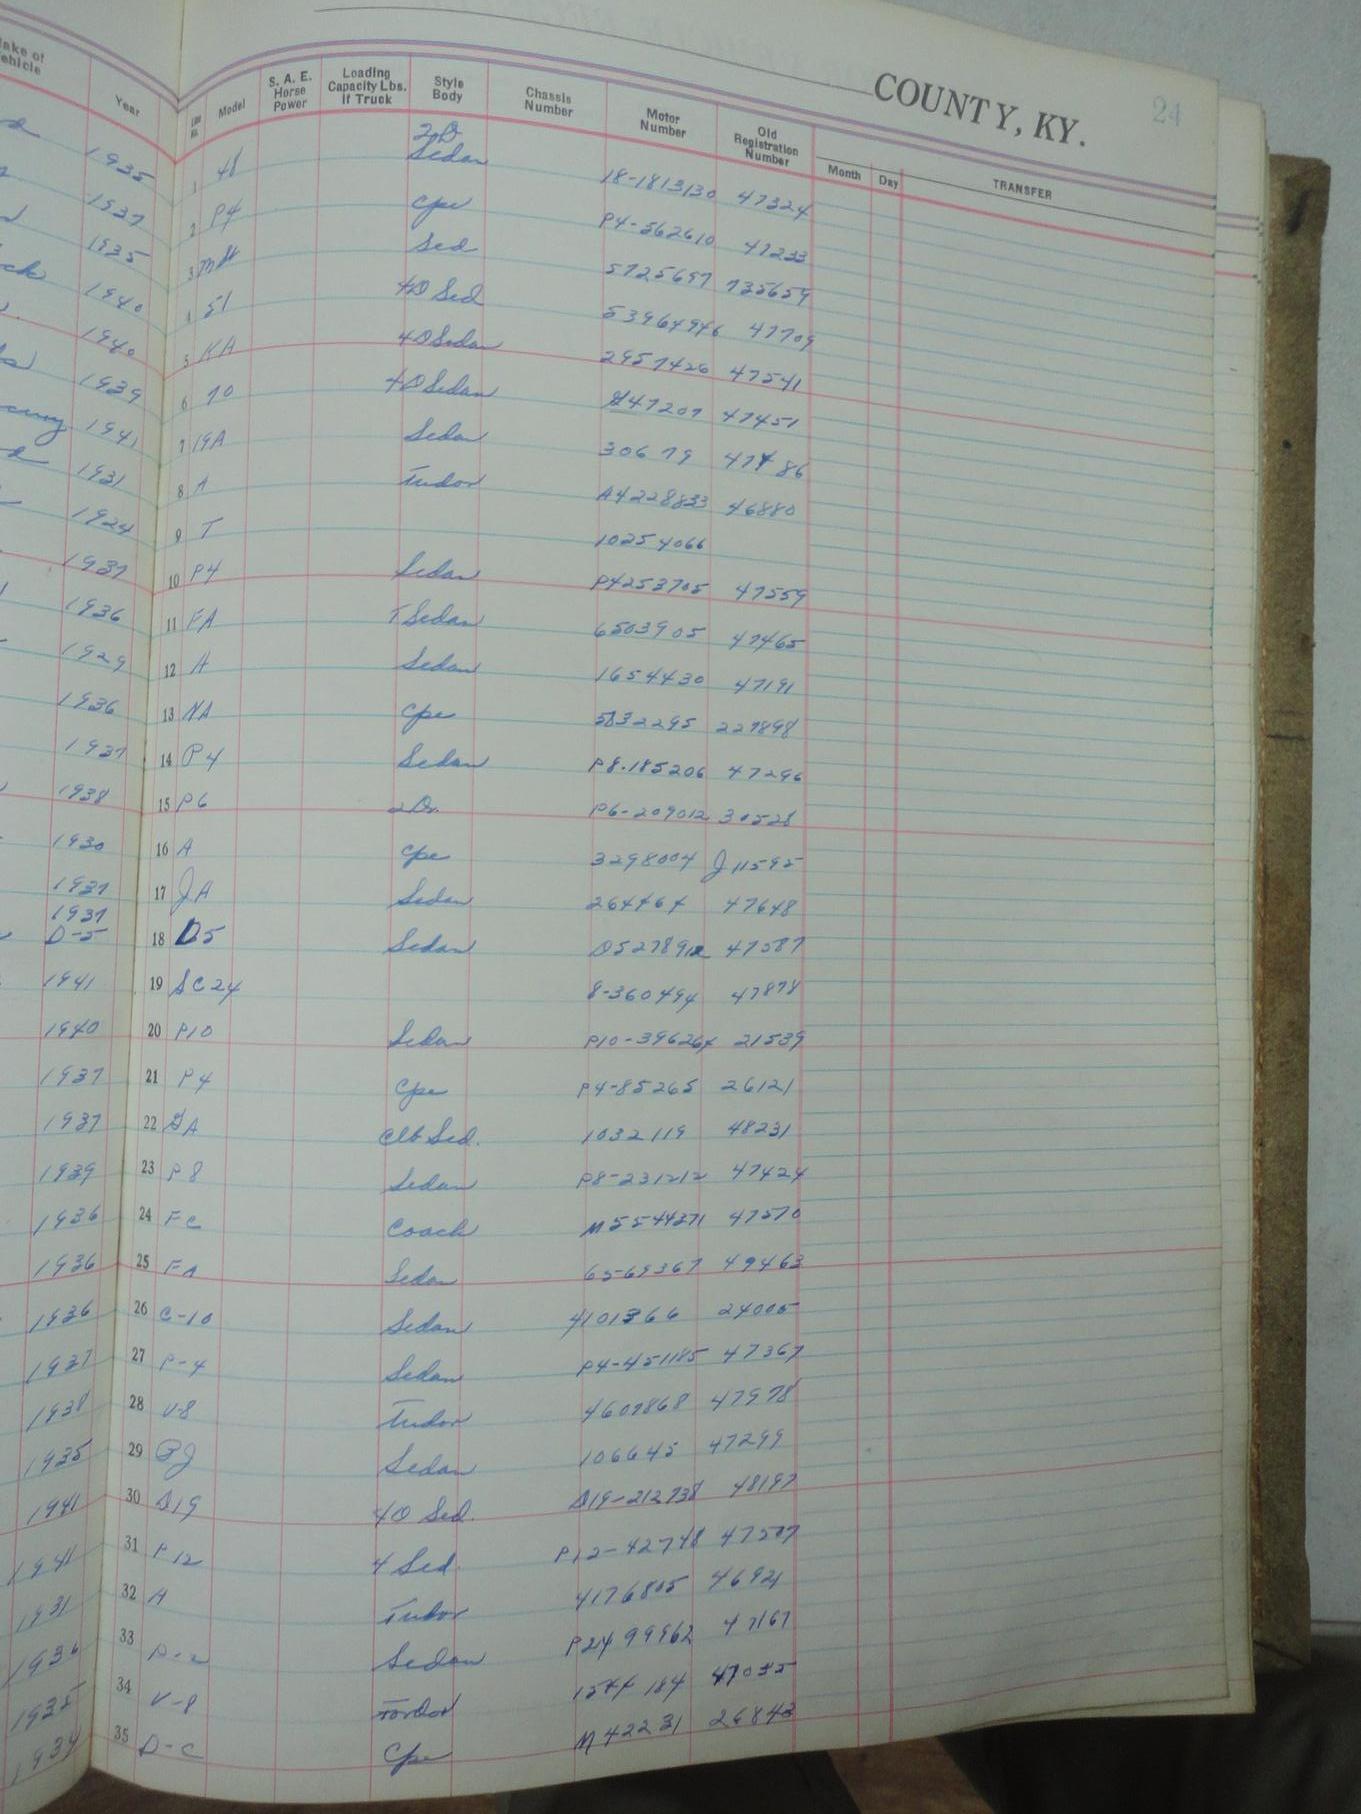 COUNTY, KY. 24
Year Model S. A. E. Horse Power Loading Capacity Lbs. If Truck Style Body Chassis Number Motor Number Old Registration Number Month Day TRANSFER
1935 1 48 2D Sedan 18-1813130 47324
1937 2 P4 Cpe P4-362610 47233
1935 3 Mst Sed 5725657 735659
1940 4 51 4D Sed 53964946 47709
1940 5 KA 4D Sedan 2957426 47541
1939 6 70 4D Sedan 47451
1941 7 19A Sedan 30679 47486
1931 8 A Tudor A4228833 46880
1924 9 T 10254066
1937 10 P4 Sedan P4253705 47559
1936 11 FA T Sedan 6503905 47465
1929 12 A Sedan 1654430 47191
1936 13 NA Cpe 5832295 227898
1937 14 P4 Sedan P8.185206 47296
1938 15 P6 2Dr. P6-209012 30528
1930 16 A Cpe 3298004 J11595
1937 17 JA Sedan 264464 47648
1937 D-5 18 D5 Sedan D5278912 47587
1941 19 SC24 8-360494 47878
1940 20 P10 Sedan P10-396264 21539
1937 21 P4 Cpe P4-85265 26121
1937 22 GA Clb Sed. 1032119 48231
1939 23 P8 Sedan P8-231212 47424
1936 24 FC Coach M5544371 47570
1936 25 FA Sedan 65-69367 49463
1936 26 C-10 Sedan 4101366 24005
1937 27 P-4 Sedan P4-451185 47367
1938 28 V-8 Tudor 4607868 47978
1935 29 PJ Sedan 106645 47299
1941 30 D19 4D Sed. D19-212738 48197
1941 31 P12 4 Sed. P12-42748 47507
1931 32 A Tudor 4176805 46921
1936 33 P-2 Sedan P24 99962 47167
1935 34 V-8 Fordor 1544184 47035
1934 35 D-C Cpe M42231 26843